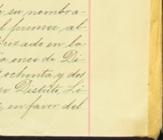 e, su nombra-
l primer, al-
torizado en la
a once de Di-
ochenta y dos
o Distrito Li-
, en favor del